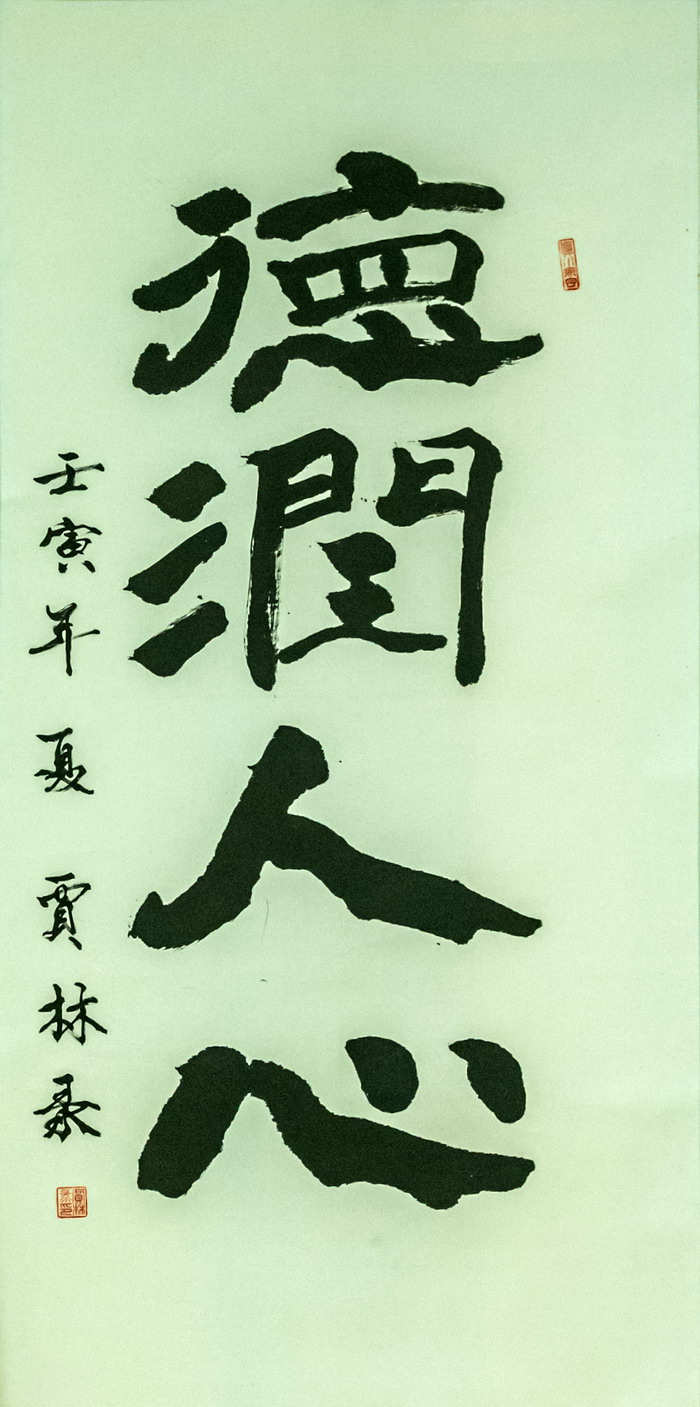 德潤人心
壬寅年 夏 賈林泉